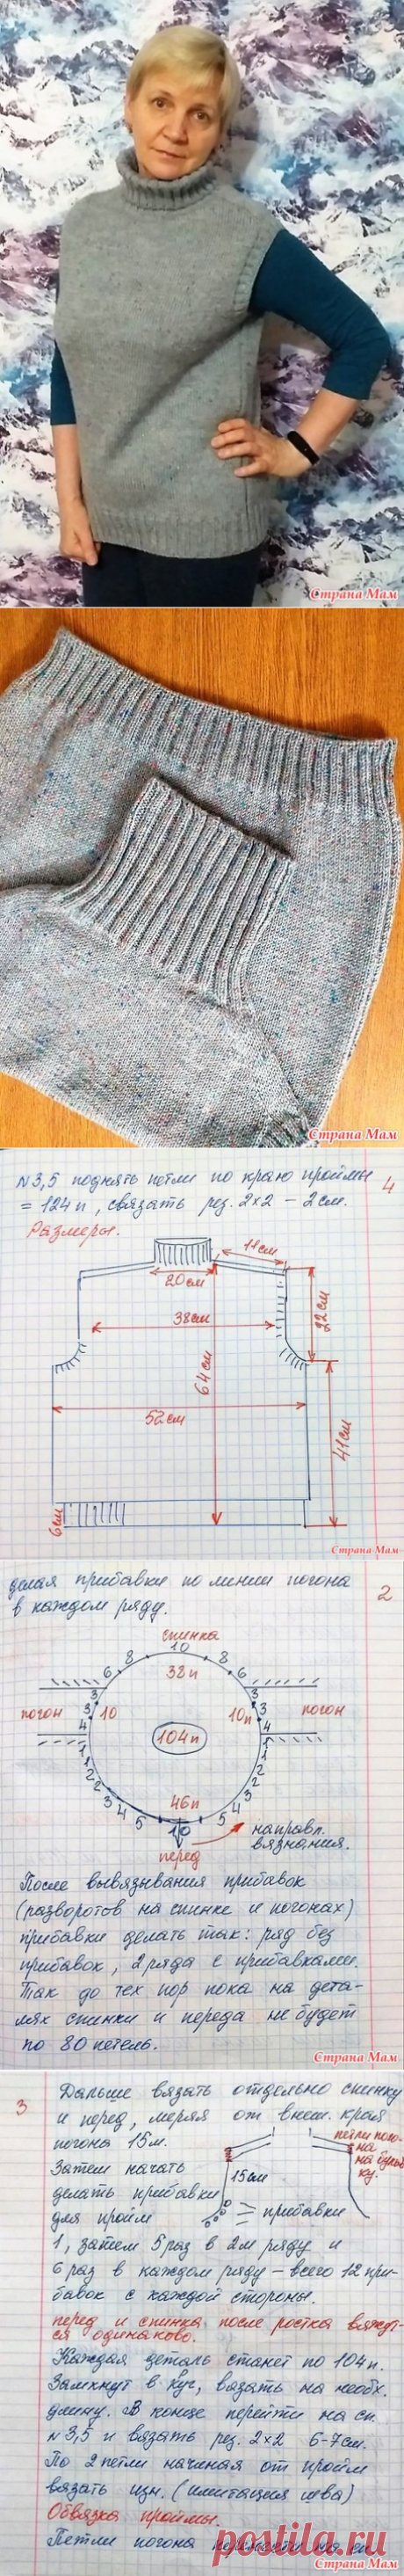 Страна Мам
Страна Мам
N3,5 поднять петли по краю проймы 4
= 124 п, связать рез. 2×2 – 2 см.
Размеры.
11 см
20 см
38 см
22 см
64 см
52 см
41 см
6 см
Страна Мам
делая прибавки по линии погона
в каждом ряду. 2
спинка
10
8 8
6 38 п 6
3 3
погон 3 10 10 п 3 погон
4 104 п 4
1 1
1 1
2 2
2 2
3 3
4 46 п 4
5 10 5
перед
направл.
вязания.
После вывязывания прибавок
(разворотов на спинке и погонах)
прибавки делать так: ряд без
прибавок, 2 ряда с прибавками.
Так до тех пор пока на дета-
лях спинки и переда не будет
по 80 петель.
Страна Мам
3 Дальше вязать отдельно спинку
и перед, меряя от внеш. края
погона 15 м.
петли пого-
на
на булав
ку.
Затем начать
делать прибавки
для пройм
15 см
прибавки
1, затем 5 раз в 2м ряду и
6 раз в каждом ряду – всего 12 при-
бавок с каждой стороны.
перед и спинка после ростка вяжут-
ся одинаково.
Каждая деталь станет по 104 п.
Замкнут в круг, вязать на необх.
длину. В конце перейти на сп.
N3,5 и вязать рез. 2×2 6-7 см.
По 2 петли начиная от пройм
вязать изн. (имитация шва)
Обвязка проймы.
Петли погона
postila.ru
Страна Мам